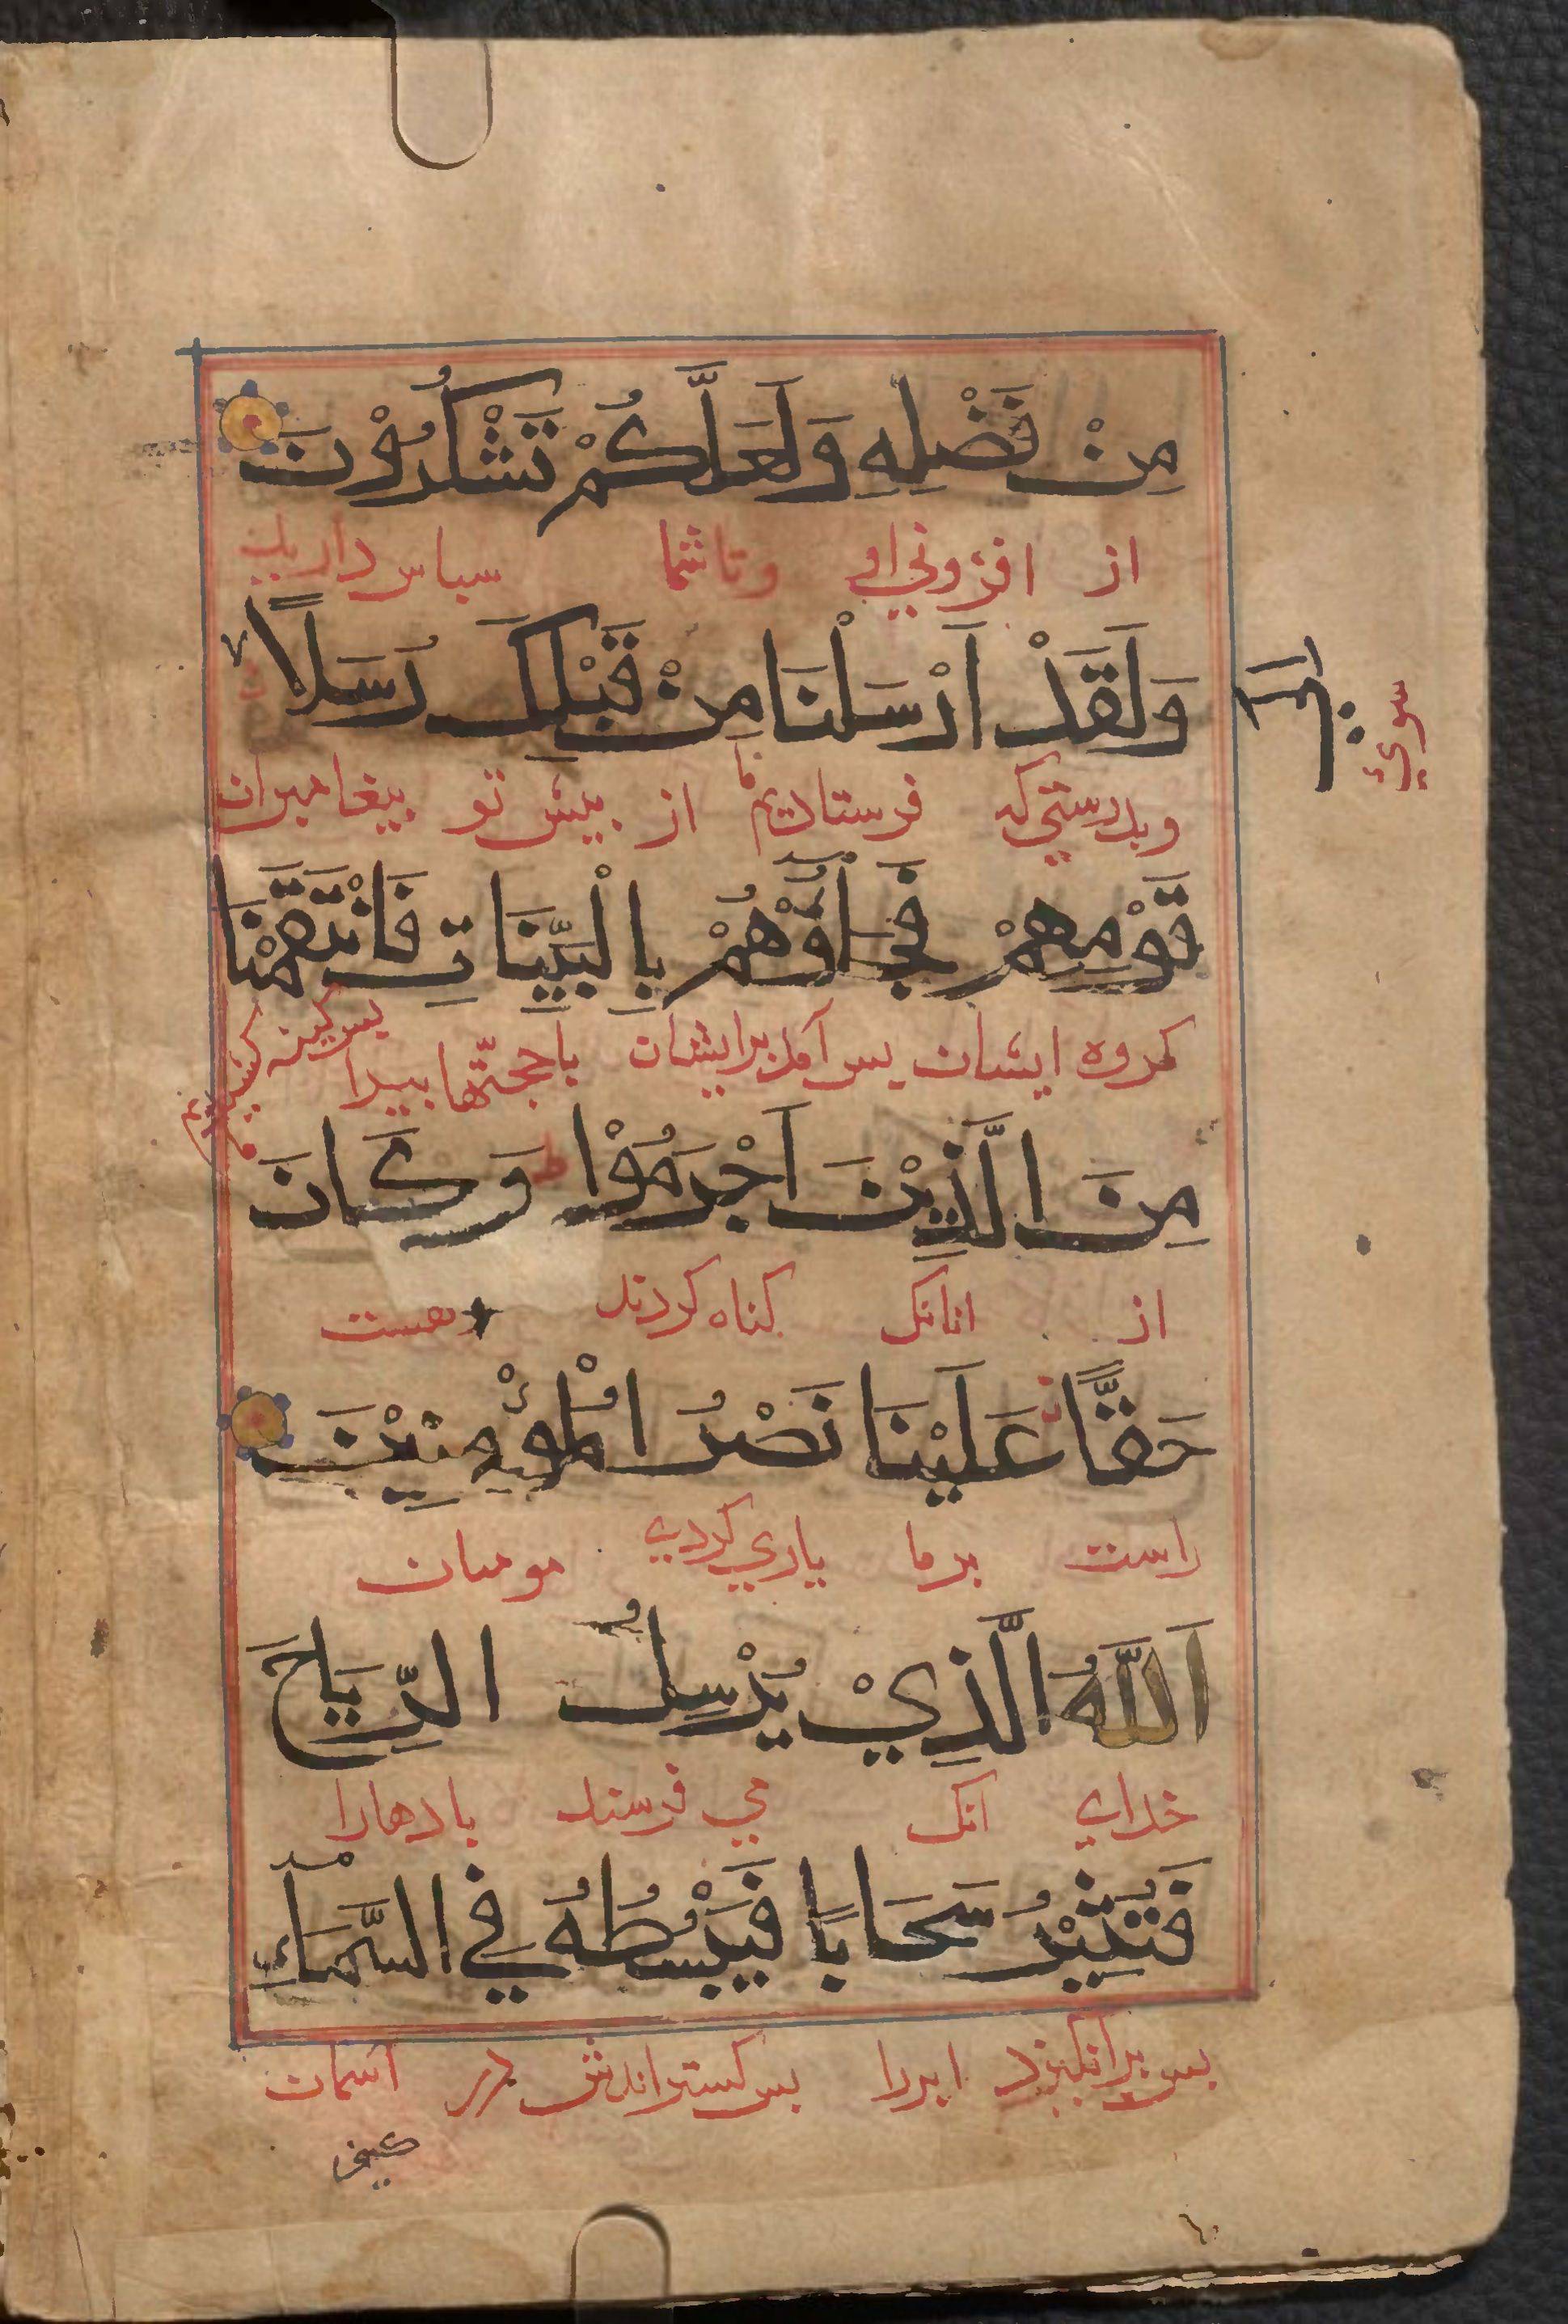 مِنْ فَضْلِهِ وَلَعَلَّكُمْ تَشْكُرُوْنَ
از افزوني او وتا شما سباس داريت
وَلَقَدْ اَرْسَلْنَا مِنْ قَبْلِكَ رُسَلًا
اِلَى
سوئ
وبدرستي كه فرستاديم ما از بيش تو بيغامبران
قَوْمِهِمْ فَجَآؤُهُمْ بِالْبَيِّنَاتِ فَانْتَقَمْنَا
كروه ايشان بس آمد برايشان باحجّتها بيدا بس كينه كشيديم ما
مِنَ الَّذِيْنَ اَجْرَمُوْا وَكَانَ
از انانك كناه كردند وهست
حَقًّا عَلَيْنَا نَصْرُ الْمُؤْمِنِيْنَ
راست برما ياري كردن مومنان
اَللّٰهُ الَّذِيْ يُرْسِلُ الرِّيَاحَ
خداي انك مي فرستد بادهارا
فَتُثِيْرُ سَحَابًا فَيَبْسُطُهُ فِي السَّمَاءِ
بس برانكيزد ابررا بس كستراندش در آسمان
كيف